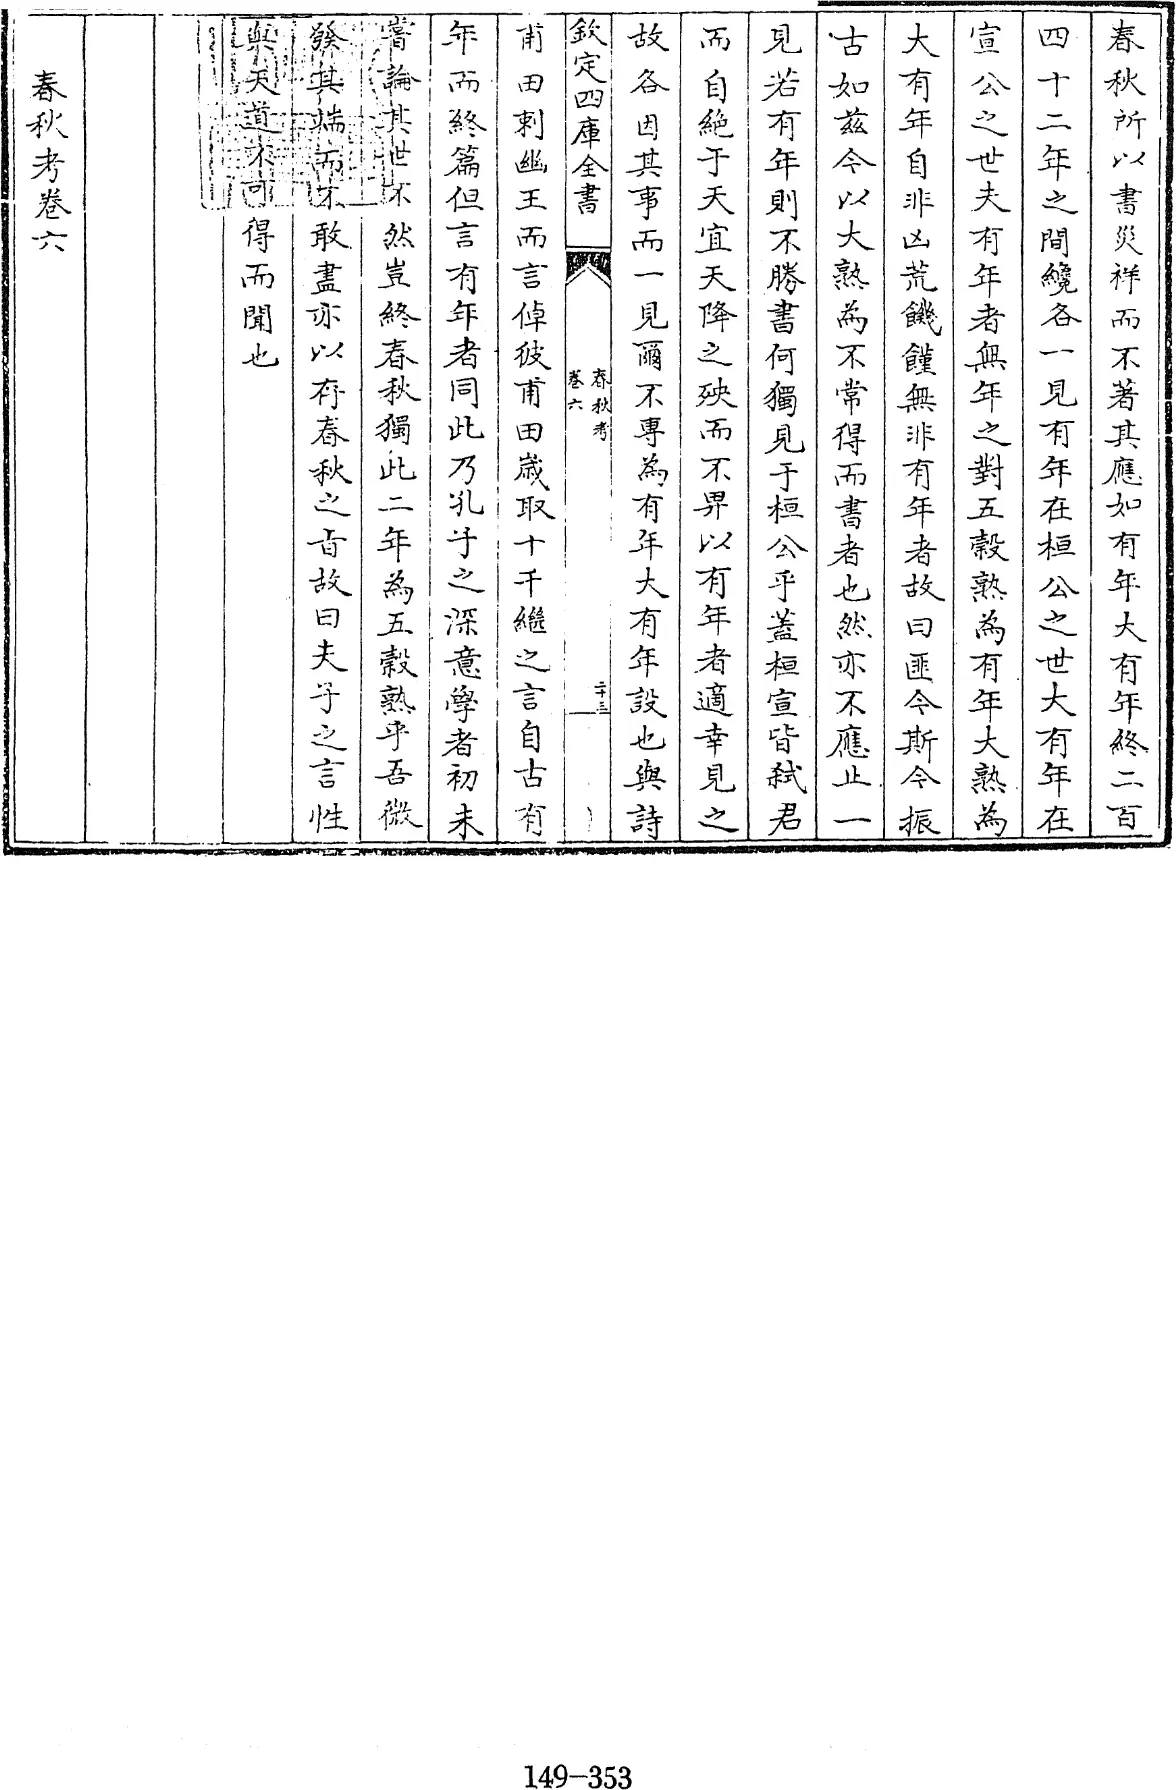 春秋所以書災祥而不著其應如有年大有年終二百
四十二年之間纔各一見有年在桓公之世大有年在
宣公之世夫有年者無年之對五穀熟為有年大熟為
大有年自非凶荒饑饉無非有年者故曰匪今斯今振
古如茲今以大熟為不常得而書者也然亦不應止一
見若有年則不勝書何獨見于桓公乎蓋桓宣皆弑君
而自絶于天宜天降之殃而不畀以有年者適幸見之
故各因其事而一見爾不專為有年大有年設也與詩
欽定四庫全書
春秋考
卷六
二十三
甫田刺幽王而言倬彼甫田歳取十千繼之言自古有
年而終篇但言有年者同此乃孔子之深意學者初未
嘗論其世不然豈終春秋獨此二年為五穀熟乎吾微
發其端而不敢盡亦以存春秋之㫖故曰夫子之言性
與天道不可得而聞也
春秋考卷六
149-353